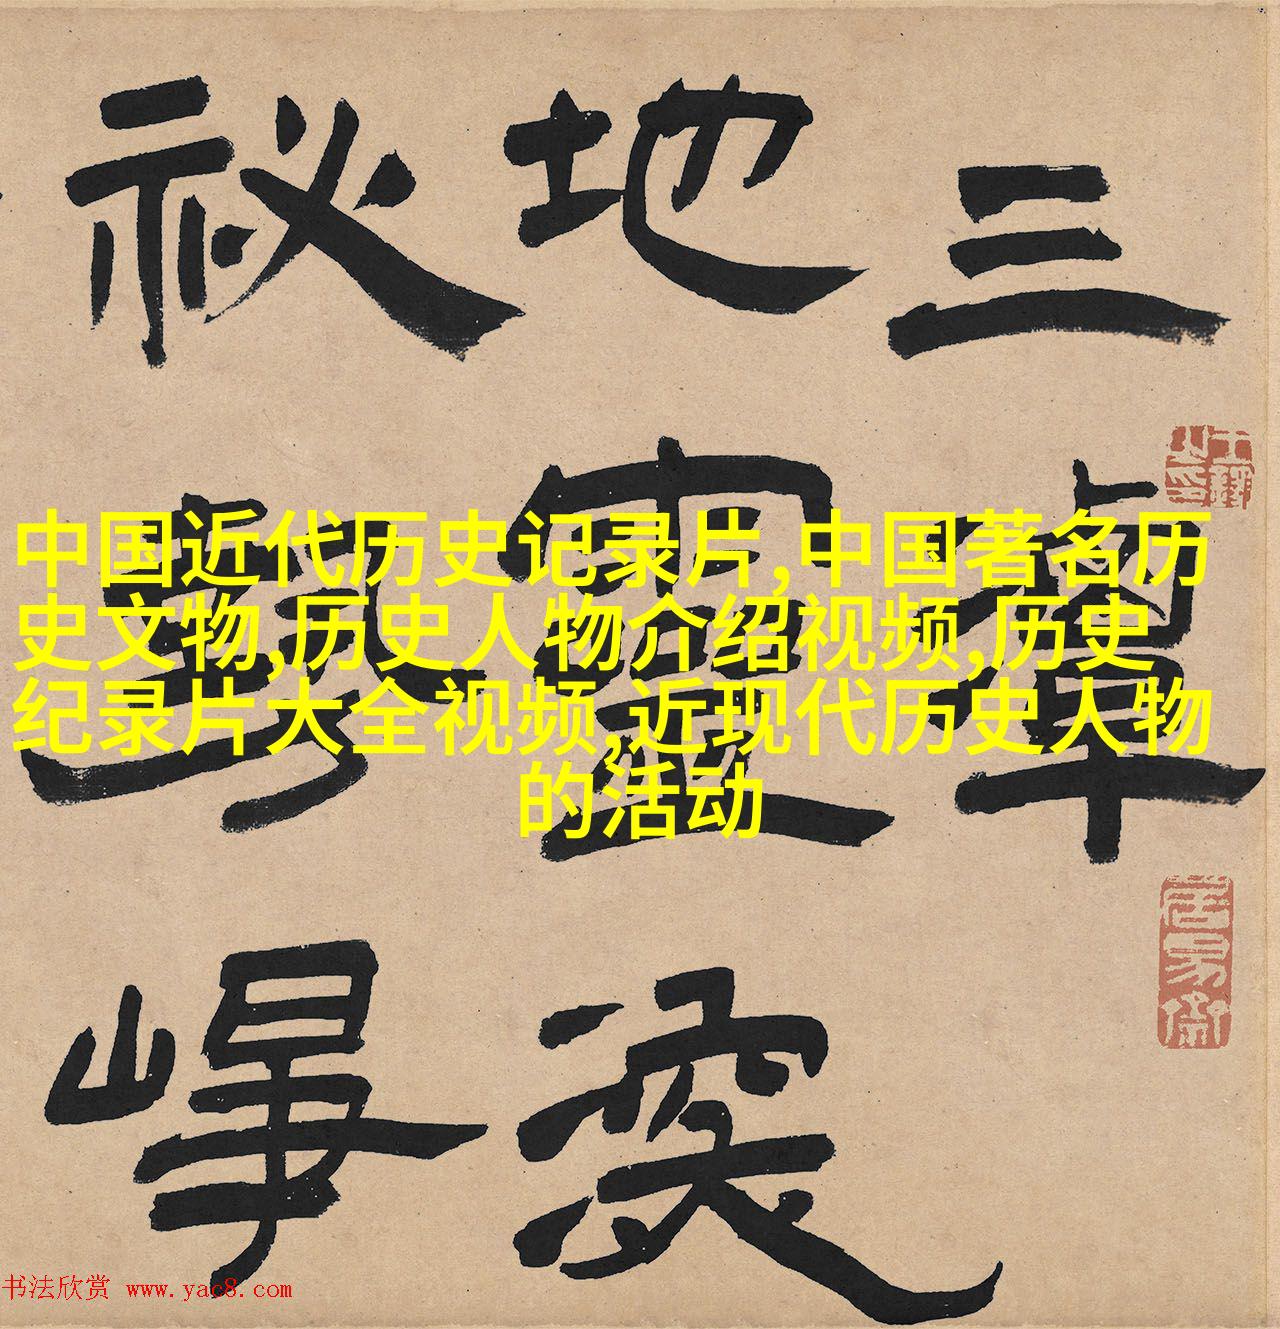 三
地靈
祕勢崢
中国近代历史记录片,中国著名历
史文物,历史人物介绍视频,历史
纪录片大全视频,近现代历史人物
的活动
书法欣赏 www.yac8.com